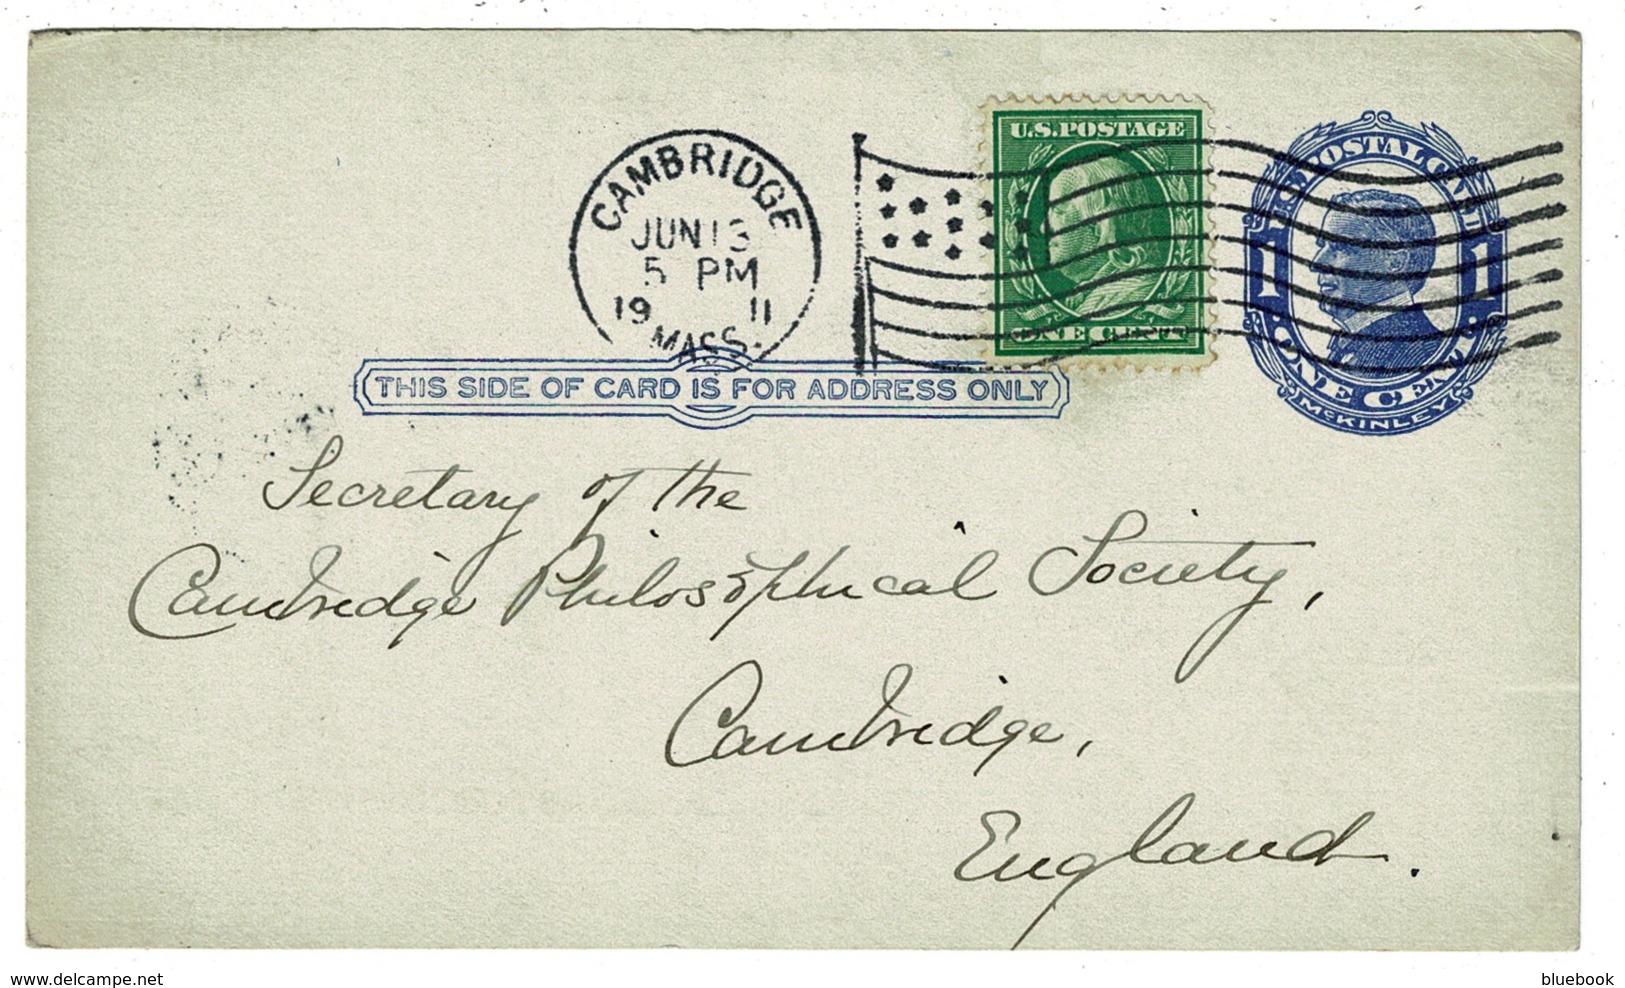 CAMBRIDGE
JUN 13
5 PM
19 11
MASS.
U.S. POSTAGE
ONE CENT
U.S. POSTAL CARD
1 1
· ONE CENT ·
McKINLEY
THIS SIDE OF CARD IS FOR ADDRESS ONLY
Secretary of the
Cambridge Philosophical Society,
Cambridge,
England.
www.delcampe.net
bluebook